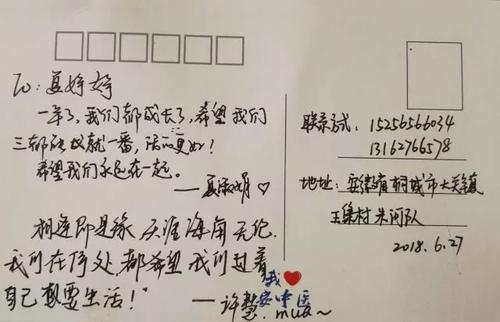 To：夏婷婷
一年了，我们都成长了，希望我们
三都能成就一番，活的更好！
希望我们永远在一起。
——夏 ♡
相逢即是缘 天涯海角无论
我们在何处都希望我们过着
自己想要生活！"
——许慧.
我❤
安中医
mua~
联系方式：15256566034
13162766578
地址：安徽省桐城市大关镇
王集村朱河队
2018.6.27